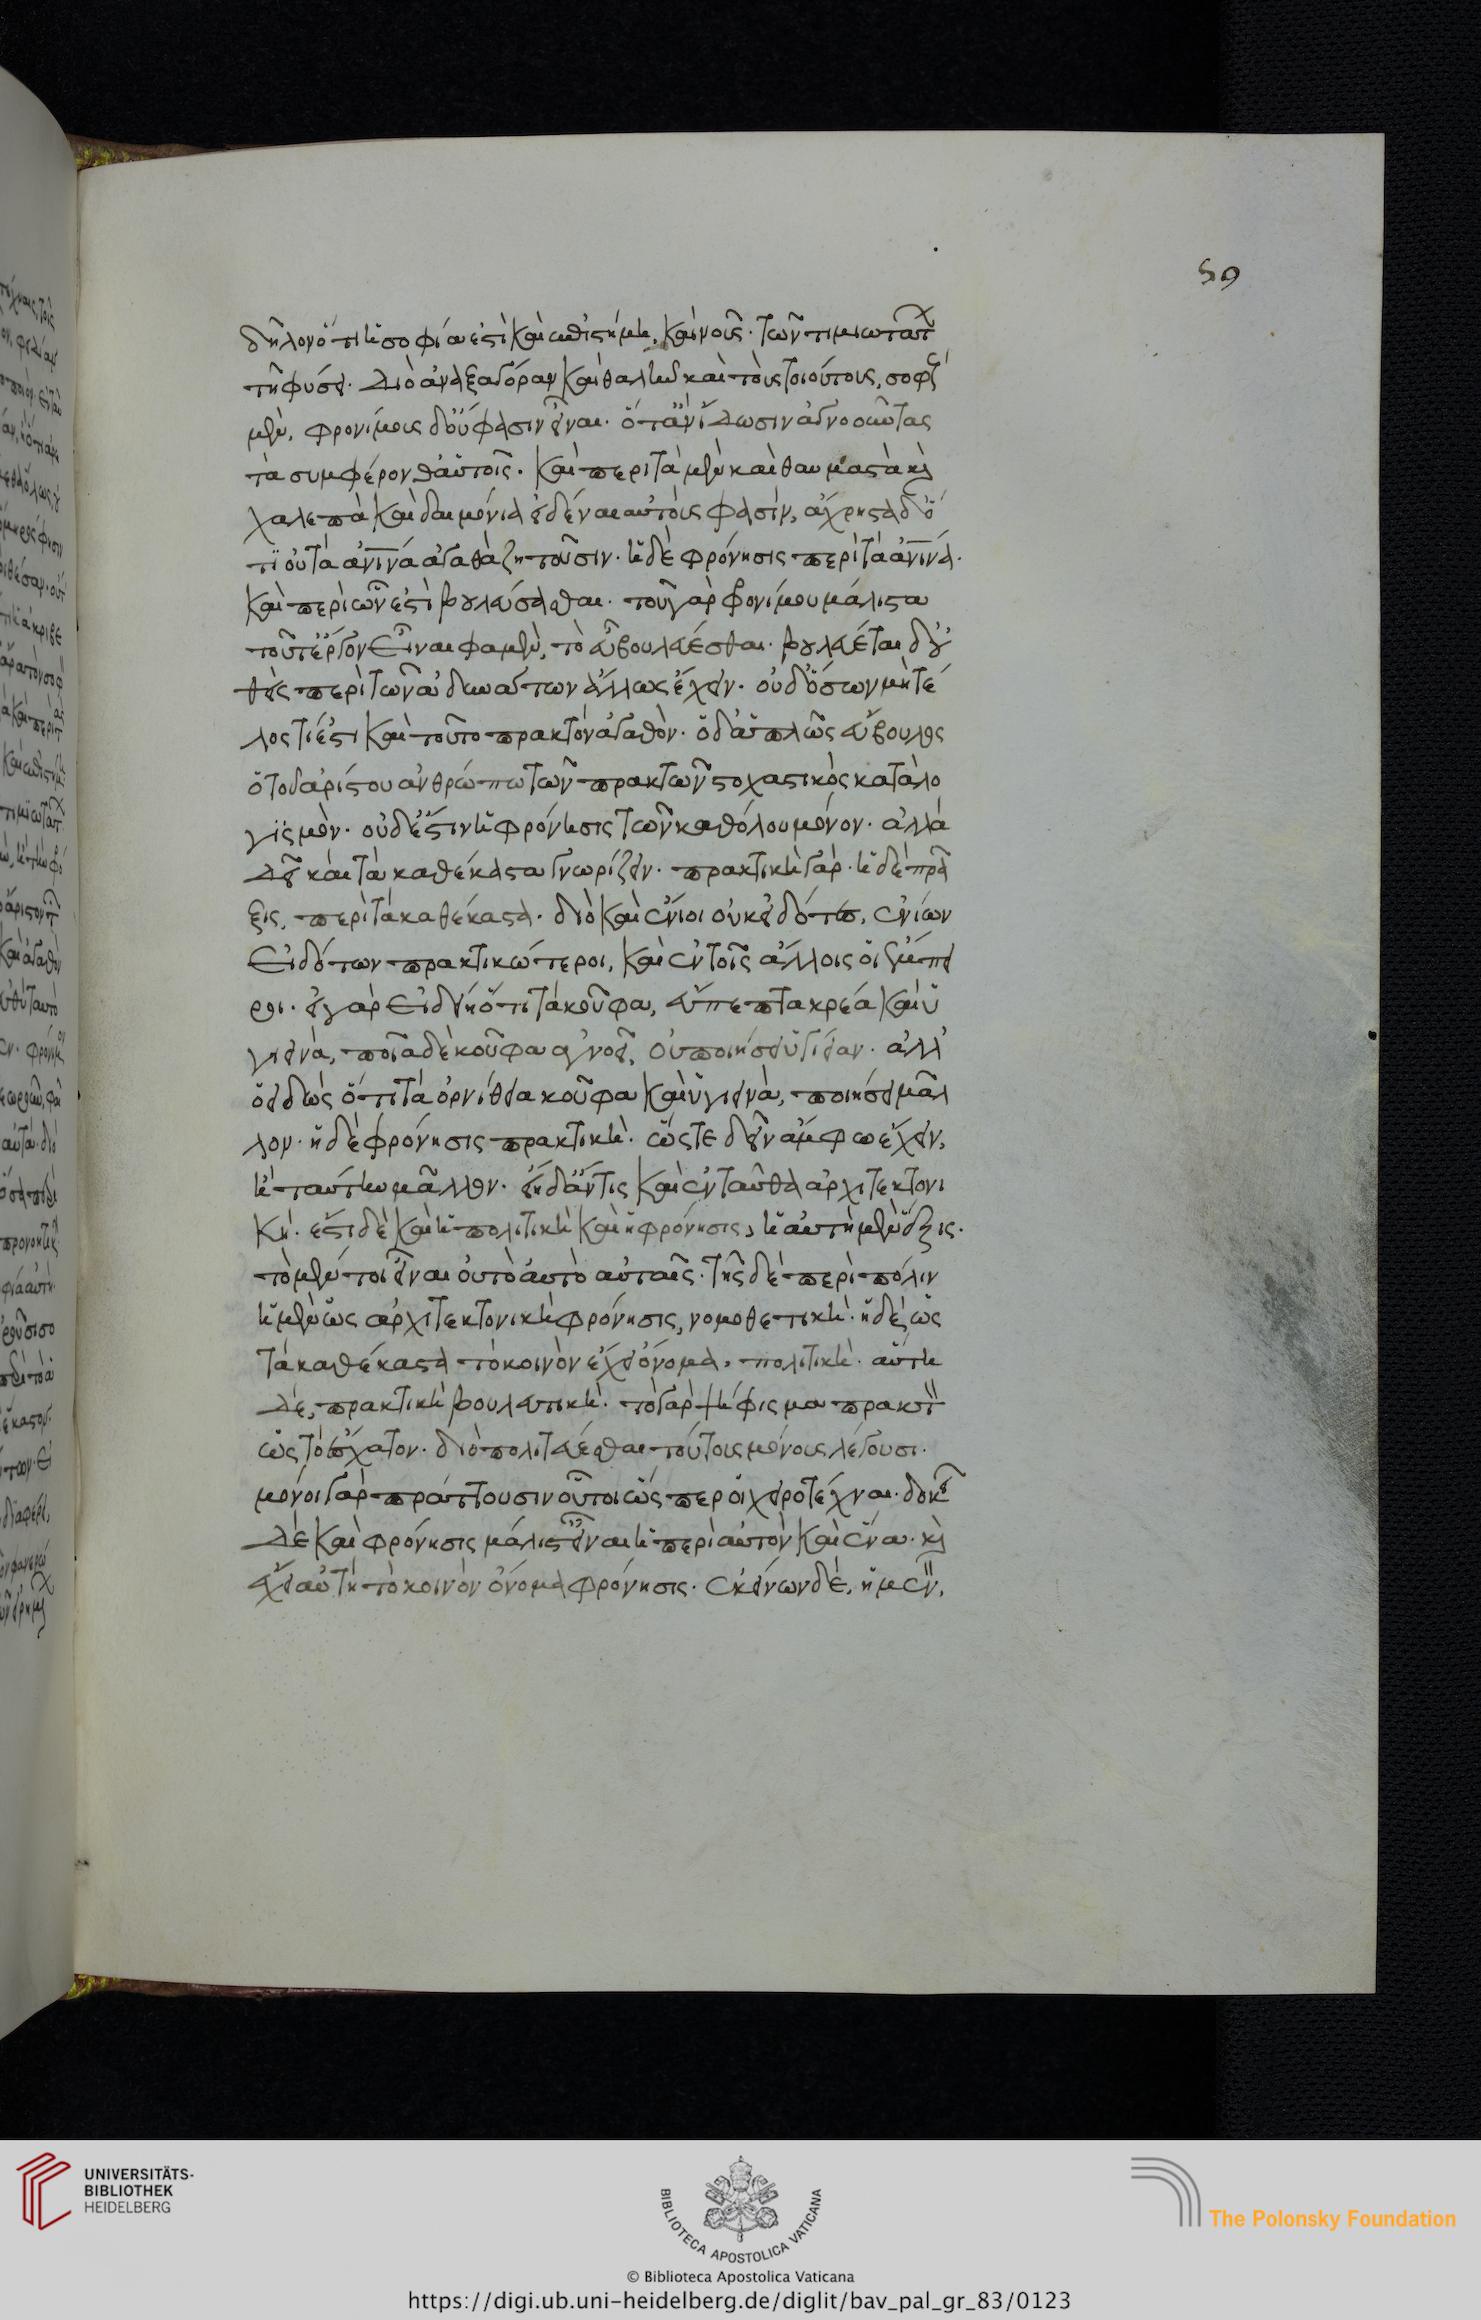 59
δῆλον ὅτι ἡ σοφία ἐστὶ καὶ ἐπιστήμη, καὶ νοῦς· τῶν τιμιωτάτων
τῆ φύσει· Διὸ ἀναξαγόραν καὶ θαλῆν καὶ τοὺς τοιούτους, σοφοὺς
μὲν, φρονίμους δ' οὔ φασιν εἶναι· ὅταν ἴδωσιν ἀγνοοῦντας
τὰ συμφέρονθ' αὑτοῖς· καὶ περιττὰ μὲν καὶ θαυμαστὰ καὶ
χαλεπὰ καὶ δαιμόνια εἰδέναι αὐτούς φασίν, ἄχρηστα δ' ὅ
τι οὐ τὰ ἀνινὰ ἀγαθὰ ζητοῦσιν· ἡ δὲ φρόνησις περὶ τὰ ἀνινά·
καὶ περὶ ὧν ἐστὶ βουλεύσασθαι· τοῦ γὰρ φρονίμου μάλιστα
τοῦτ' ἔργον εἶναι φαμὲν, τὸ εὖ βουλεύεσθαι· βουλεύεται δ' οὐ
θεὶς περὶ τῶν ἀδυνάτων ἄλλως ἔχειν· οὐδ' ὅσων μὴ τέ
λος τί ἐστι καὶ τοῦτο πρακτὸν ἀγαθὸν· ὁ δ' ἁπλῶς εὔβουλος
ὁ τοῦ ἀρίστου ἀνθρώπω τῶν πρακτῶν στοχαστικὸς κατὰ λο
γισμὸν· οὐδ' ἔστιν ἡ φρόνησις τῶν καθόλου μόνον· ἀλλὰ
Δεῖ καὶ τὰ καθέκαστα γνωρίζειν· πρακτικὴ γάρ· ἡ δὲ πρᾶ
ξις, περὶ τὰ καθέκαστα· διὸ καὶ ἔνιοι οὐκ εἰδότες, ἐνίων
εἰδότων πρακτικώτεροι, καὶ ἐν τοῖς ἄλλοις οἱ ἔμπει
ροι· εἰ γὰρ εἰδείη ὅτι τὰ κοῦφα, εὔπεπτα κρέα καὶ ὑ
γιεινὰ, ποῖα δὲ κοῦφα ἀγνοεῖ, οὐ ποιήσει ὑγίειαν· ἀλλ'
ὁ εἰδὼς ὅτι τὰ ὀρνίθεια κοῦφα καὶ ὑγιεινὰ, ποιήσει μᾶλ
λον· ἡ δὲ φρόνησις πρακτική· ὥστε δεῖ ἄμφω ἔχειν,
ἢ ταύτην μᾶλλον· εἴη δ' ἄν τις καὶ ἐνταῦθα ἀρχιτεκτονι
κή· ἔστι δὲ καὶ ἡ πολιτικὴ καὶ ἡ φρόνησις, ἡ αὐτὴ μὲν ἕξις·
τὸ μέντοι εἶναι οὐ τὸ αὐτὸ αὐταῖς· τῆς δὲ περὶ πόλιν
ἡ μὲν ὡς ἀρχιτεκτονικὴ φρόνησις, νομοθετική· ἡ δὲ, ὡς
τὰ καθέκαστα τὸ κοινὸν ἔχει ὄνομα, πολιτική· αὕτη
Δὲ, πρακτικὴ βουλευτική· τὸ γὰρ ψήφισμα πρακτὸν
ὡς τὸ ἔσχατον· διὸ πολιτεύεσθαι τούτους μόνους λέγουσι·
μόνοι γὰρ πράττουσιν οὗτοι ὥσπερ οἱ χειροτέχναι· δοκεῖ
Δὲ καὶ φρόνησις μάλιστ' εἶναι ἡ περὶ αὐτὸν καὶ ἕνα· καὶ
ἔχει αὕτη τὸ κοινὸν ὄνομα φρόνησις· ἐκείνων δὲ, ἡ μὲν,
UNIVERSITÄTS-
BIBLIOTHEK
HEIDELBERG
BIBLIOTECA APOSTOLICA VATICANA
The Polonsky Foundation
© Biblioteca Apostolica Vaticana
https://digi.ub.uni-heidelberg.de/diglit/bav_pal_gr_83/0123